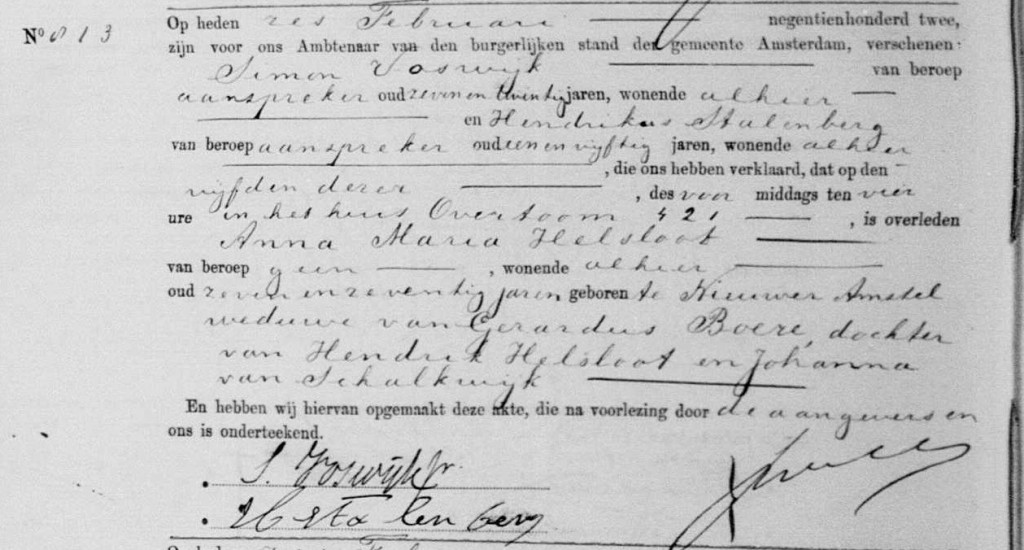 Nº 813
Op heden zes Februari negentienhonderd twee,
zijn voor ons Ambtenaar van den burgerlijken stand der gemeente Amsterdam, verschenen:
Simon Voswijk van beroep
aanspreker oud zeven en twintig jaren, wonende alhier
en Hendrikus Stalenberg
van beroep aanspreker oud een en vijftig jaren, wonende alhier
, die ons hebben verklaard, dat op den
vijfden dezer , des voor middags ten vier
ure in het huis Overtoom 421 , is overleden
Anna Maria Helsloot
van beroep geen , wonende alhier
oud zeven en zeventig jaren geboren te Nieuwer Amstel
weduwe van Gerardus Boere, dochter
van Hendrik Helsloot en Johanna
van Schalkwijk
En hebben wij hiervan opgemaakt deze akte, die na voorlezing door de aangevers en
ons is onderteekend.
S. Voswijk Jr.
H Stalenberg